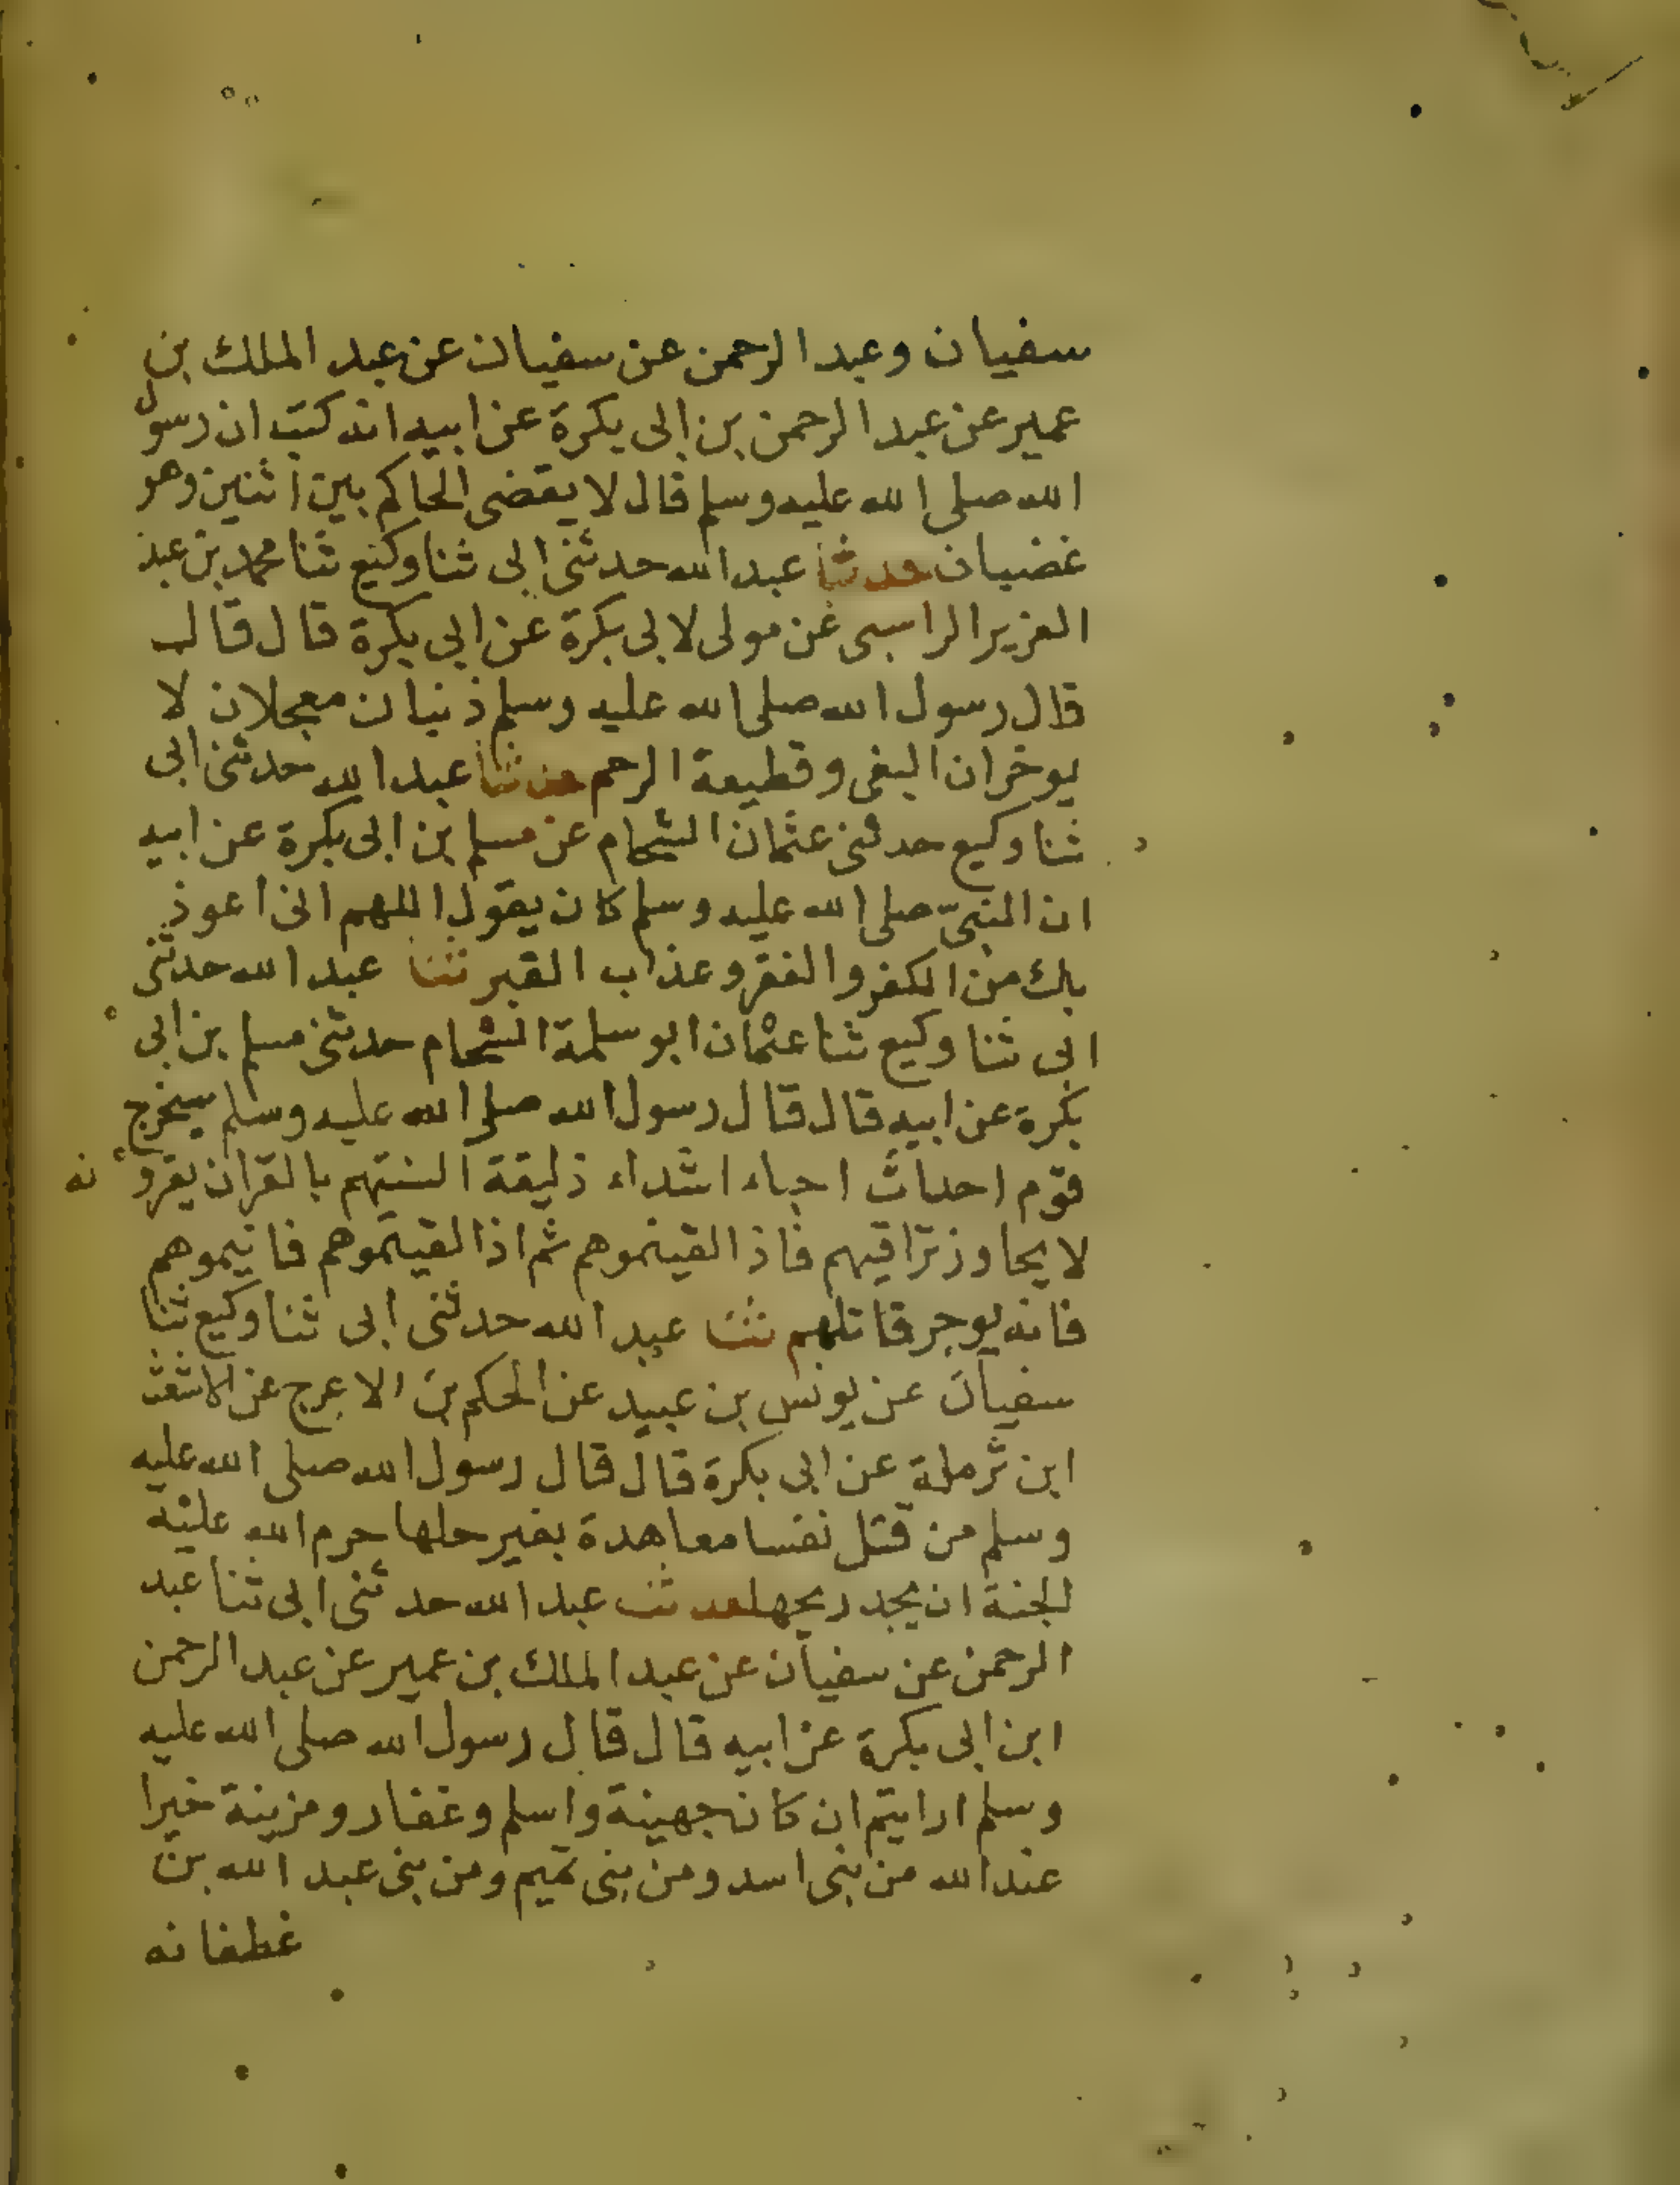 سفيان وعبد الرحمن عن سفيان عن عبد الملك بن
عمير عن عبد الرحمن بن ابى بكرة عن ابيه انه كتب ان رسول
الله صلى الله عليه وسلم قال لا يقضى الحاكم بين اثنين وهو
غضبان حدثنا عبد الله حدثنى ابى ثنا وكيع ثنا محمد بن عبد
العزيز الراسبى عن مولى لابى بكرة عن ابى بكرة قال قال
قال رسول الله صلى الله عليه وسلم ذنبان معجلان لا
يوخران البغى وقطيعة الرحم حدثنا عبد الله حدثنى ابى
ثنا وكيع حدثنى عثمان الشحام عن مسلم بن ابى بكرة عن ابيه
ان النبىّ صلى الله عليه وسلم كان يقول اللهم انى اعوذ
بك من الكفر والفقر وعذاب القبر ثنا عبد الله حدثنى
ابى ثنا وكيع ثنا عثمان ابو سلمة الشحام حدثنى مسلم بن ابى
بكرة عن ابيه قال قال رسول الله صلى الله عليه وسلم سيخرج
قوم احداث احباء اشداء ذليقة السنتهم بالقران يقرونه
لا يجاوز تراقيهم فاذا لقيتموهم ثم اذا لقيتموهم فانيموهم
فانه يوجر قاتلهم ثنا عبد الله حدثنى ابى ثنا وكيع ثنا
سفيان عن يونس بن عبيد عن الحكم بن الاعرج عن الاشعث
ابن ثرملة عن ابى بكرة قال قال رسول الله صلى الله عليه
وسلم من قتل نفسا معاهدة بغير حلها حرم الله عليه
الجنة ان يجد ريحها حدثنا عبد الله حدثنى ابى ثنا عبد
الرحمن عن سفيان عن عبد الملك بن عمير عن عبد الرحمن
ابن ابى بكرة عن ابيه قال قال رسول الله صلى الله عليه
وسلم ارايتم ان كان جهينة واسلم وغفار ومزينة خيرا
عند الله من بنى اسد ومن بنى تميم ومن بنى عبد الله بن
غطفانه